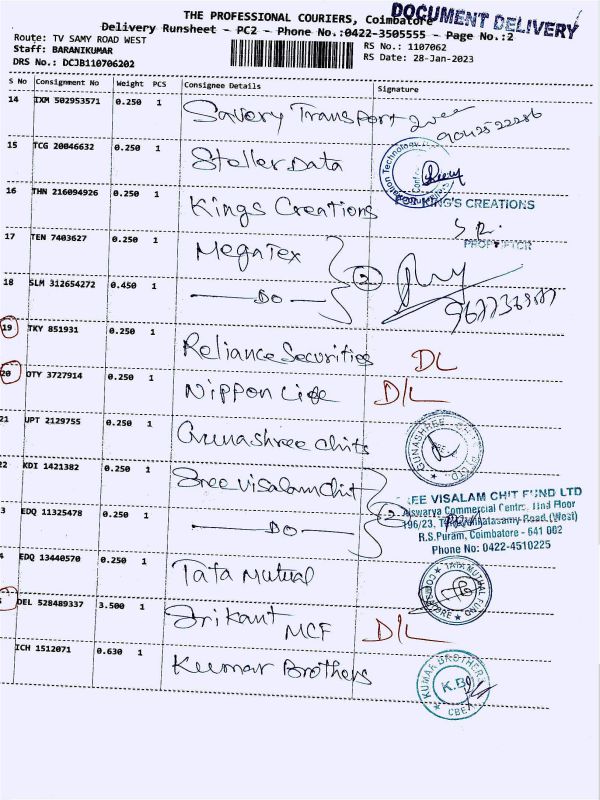 THE PROFESSIONAL COURIERS, Coimbatore
DOCUMENT DELIVERY
Delivery Runsheet - PC2 - Phone No.:0422-3505555 - Page No.:2
Route: TV SAMY ROAD WEST
RS No.: 1107062
Staff: BARANIKUMAR
RS Date: 28-Jan-2023
DRS No.: DCJB110706202
S No Consignment No Weight PCS Consignee Details Signature
14 IXM 502953571 0.250 1 Savery Transport
15 TCG 20046632 0.250 1 Steller Data
16 THN 216094926 0.250 1 Kings Creations
KING'S CREATIONS
PROPRIETOR
17 TEN 7403627 0.250 1 Megatex
18 SLM 312654272 0.450 1 — DO — 2
19 TKY 851931 0.250 1 Reliance Securities DL
20 OTY 3727914 0.250 1 Nippon Life D/L
21 UPT 2129755 0.250 1 Gunashree chits
GUNASHREE CHIT
22 KDI 1421382 0.250 1 Sree Visalam chit
EE VISALAM CHIT FUND LTD
Aiswarya Commercial Centre, IInd Floor
3 EDQ 11325478 0.250 1 — DO — 2
196/23, (West)
R.S.Puram, Coimbatore - 641 002
Phone No: 0422-4510225
4 EDQ 13440570 0.250 1 Tata Mutual
TATA MUTUAL FUND
5 DEL 528489337 3.500 1 Srikant MCF D/L
ICH 1512071 0.630 1 Kumar Brothers
KUMAR BROTHERS
K.B
CBE